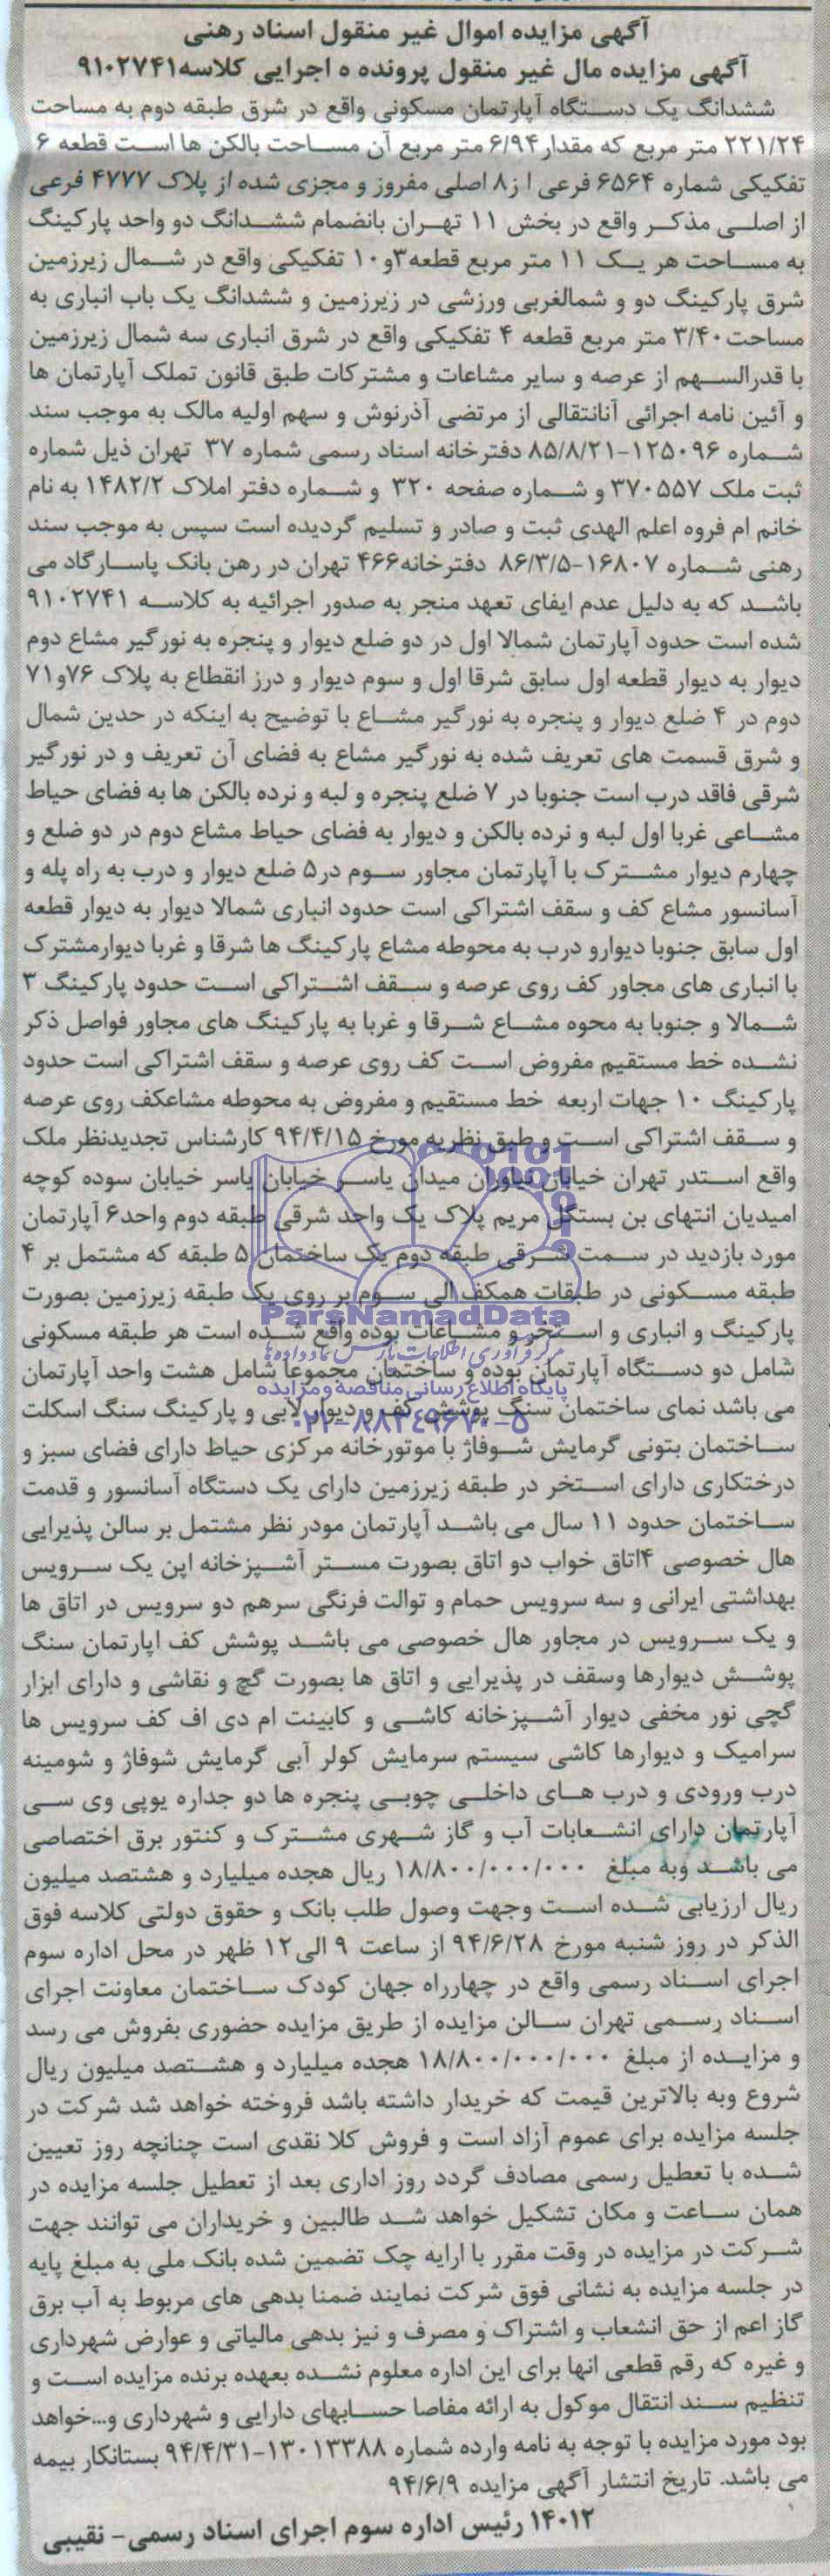 آگهی مزایده اموال غیر منقول اسناد رهنی
آگهی مزایده مال غیر منقول پرونده ه اجرایی کلاسه۹۱۰۲۷۴۱
ششدانگ یک دستگاه آپارتمان مسکونی واقع در شرق طبقه دوم به مساحت
۲۲۱/۲۴ متر مربع که مقدار۶/۹۴ متر مربع آن مساحت بالکن ها است قطعه ۶
تفکیکی شماره ۶۵۶۴ فرعی ا ز۸ اصلی مفروز و مجزی شده از پلاک ۴۷۷۷ فرعی
از اصلی مذکر واقع در بخش ۱۱ تهران بانضمام ششدانگ دو واحد پارکینگ
به مساحت هر یک ۱۱ متر مربع قطعه۳و۱۰ تفکیکی واقع در شمال زیرزمین
شرق پارکینگ دو و شمالغربی ورزشی در زیرزمین و ششدانگ یک باب انباری به
مساحت۳/۴۰ متر مربع قطعه ۴ تفکیکی واقع در شرق انباری سه شمال زیرزمین
با قدرالسهم از عرصه و سایر مشاعات و مشترکات طبق قانون تملک آپارتمان ها
و آئین نامه اجرائی آنانتقالی از مرتضی آذرنوش و سهم اولیه مالک به موجب سند
شماره ۱۲۵۰۹۶-۸۵/۸/۲۱ دفترخانه اسناد رسمی شماره ۳۷ تهران ذیل شماره
ثبت ملک ۳۷۰۵۵۷ و شماره صفحه ۳۲۰ و شماره دفتر املاک ۱۴۸۲/۲ به نام
خانم ام فروه اعلم الهدی ثبت و صادر و تسلیم گردیده است سپس به موجب سند
رهنی شماره ۱۶۸۰۷-۸۶/۳/۵ دفترخانه۴۶۶ تهران در رهن بانک پاسارگاد می
باشد که به دلیل عدم ایفای تعهد منجر به صدور اجرائیه به کلاسه ۹۱۰۲۷۴۱
شده است حدود آپارتمان شمالا اول در دو ضلع دیوار و پنجره به نورگیر مشاع دوم
دیوار به دیوار قطعه اول سابق شرقا اول و سوم دیوار و درز انقطاع به پلاک ۷۶و۷۱
دوم در ۴ ضلع دیوار و پنجره به نورگیر مشاع با توضیح به اینکه در حدین شمال
و شرق قسمت های تعریف شده به نورگیر مشاع به فضای آن تعریف و در نورگیر
شرقی فاقد درب است جنوبا در ۷ ضلع پنجره و لبه و نرده بالکن ها به فضای حیاط
مشاعی غربا اول لبه و نرده بالکن و دیوار به فضای حیاط مشاع دوم در دو ضلع و
چهارم دیوار مشترک با آپارتمان مجاور سوم در۵ ضلع دیوار و درب به راه پله و
آسانسور مشاع کف و سقف اشتراکی است حدود انباری شمالا دیوار به دیوار قطعه
اول سابق جنوبا دیوارو درب به محوطه مشاع پارکینگ ها شرقا و غربا دیوارمشترک
با انباری های مجاور کف روی عرصه و سقف اشتراکی است حدود پارکینگ ۳
شمالا و جنوبا به محوه مشاع شرقا و غربا به پارکینگ های مجاور فواصل ذکر
نشده خط مستقیم مفروض است کف روی عرصه و سقف اشتراکی است حدود
پارکینگ ۱۰ جهات اربعه خط مستقیم و مفروض به محوطه مشاعکف روی عرصه
و سقف اشتراکی است و طبق نظریه مورخ ۹۴/۴/۱۵ کارشناس تجدیدنظر ملک
واقع استدر تهران خیابان نیاوران میدان یاسر خیابان یاسر خیابان سوده کوچه
امیدیان انتهای بن بستگل مریم پلاک یک واحد شرقی طبقه دوم واحد۶ آپارتمان
مورد بازدید در سمت شرقی طبقه دوم یک ساختمان ۵ طبقه که مشتمل بر ۴
طبقه مسکونی در طبقات همکف الی سوم بر روی یک طبقه زیرزمین بصورت
ParsNamadData
پارکینگ و انباری و استخر و مشاعات بوده واقع شده است هر طبقه مسکونی
مرکز فرآوری اطلاعات پارس نماد داده ها
شامل دو دستگاه آپارتمان بوده و ساختمان مجموعا شامل هشت واحد آپارتمان
پایگاه اطلاع رسانی مناقصه و مزایده
می باشد نمای ساختمان سنگ پوشش کف و دیوار لابی و پارکینگ سنگ اسکلت
۰۲۱-۸۸۳۴۹۶۷۰-۵
ساختمان بتونی گرمایش شوفاژ با موتورخانه مرکزی حیاط دارای فضای سبز و
درختکاری دارای استخر در طبقه زیرزمین دارای یک دستگاه آسانسور و قدمت
ساختمان حدود ۱۱ سال می باشد آپارتمان مودر نظر مشتمل بر سالن پذیرایی
هال خصوصی ۴اتاق خواب دو اتاق بصورت مستر آشپزخانه اپن یک سرویس
بهداشتی ایرانی و سه سرویس حمام و توالت فرنگی سرهم دو سرویس در اتاق ها
و یک سرویس در مجاور هال خصوصی می باشد پوشش کف اپارتمان سنگ
پوشش دیوارها وسقف در پذیرایی و اتاق ها بصورت گچ و نقاشی و دارای ابزار
گچی نور مخفی دیوار آشپزخانه کاشی و کابینت ام دی اف کف سرویس ها
سرامیک و دیوارها کاشی سیستم سرمایش کولر آبی گرمایش شوفاژ و شومینه
درب ورودی و درب های داخلی چوبی پنجره ها دو جداره یوپی وی سی
آپارتمان دارای انشعابات آب و گاز شهری مشترک و کنتور برق اختصاصی
می باشد وبه مبلغ ۱۸/۸۰۰/۰۰۰/۰۰۰ ریال هجده میلیارد و هشتصد میلیون
ریال ارزیابی شده است وجهت وصول طلب بانک و حقوق دولتی کلاسه فوق
الذکر در روز شنبه مورخ ۹۴/۶/۲۸ از ساعت ۹ الی ۱۲ ظهر در محل اداره سوم
اجرای اسناد رسمی واقع در چهارراه جهان کودک ساختمان معاونت اجرای
اسناد رسمی تهران سالن مزایده از طریق مزایده حضوری بفروش می رسد
و مزایده از مبلغ ۱۸/۸۰۰/۰۰۰/۰۰۰ هجده میلیارد و هشتصد میلیون ریال
شروع وبه بالاترین قیمت که خریدار داشته باشد فروخته خواهد شد شرکت در
جلسه مزایده برای عموم آزاد است و فروش کلا نقدی است چنانچه روز تعیین
شده با تعطیل رسمی مصادف گردد روز اداری بعد از تعطیل جلسه مزایده در
همان ساعت و مکان تشکیل خواهد شد طالبین و خریداران می توانند جهت
شرکت در مزایده در وقت مقرر با ارایه چک تضمین شده بانک ملی به مبلغ پایه
در جلسه مزایده به نشانی فوق شرکت نمایند ضمنا بدهی های مربوط به آب برق
گاز اعم از حق انشعاب و اشتراک و مصرف و نیز بدهی مالیاتی و عوارض شهرداری
و غیره که رقم قطعی انها برای این اداره معلوم نشده بعهده برنده مزایده است و
تنظیم سند انتقال موکول به ارائه مفاصا حسابهای دارایی و شهرداری و...خواهد
بود مورد مزایده با توجه به نامه وارده شماره ۱۳۰۱۳۳۸۸-۹۴/۴/۳۱ بستانکار بیمه
می باشد. تاریخ انتشار آگهی مزایده ۹۴/۶/۹
۱۴۰۱۲ رئیس اداره سوم اجرای اسناد رسمی- نقیبی